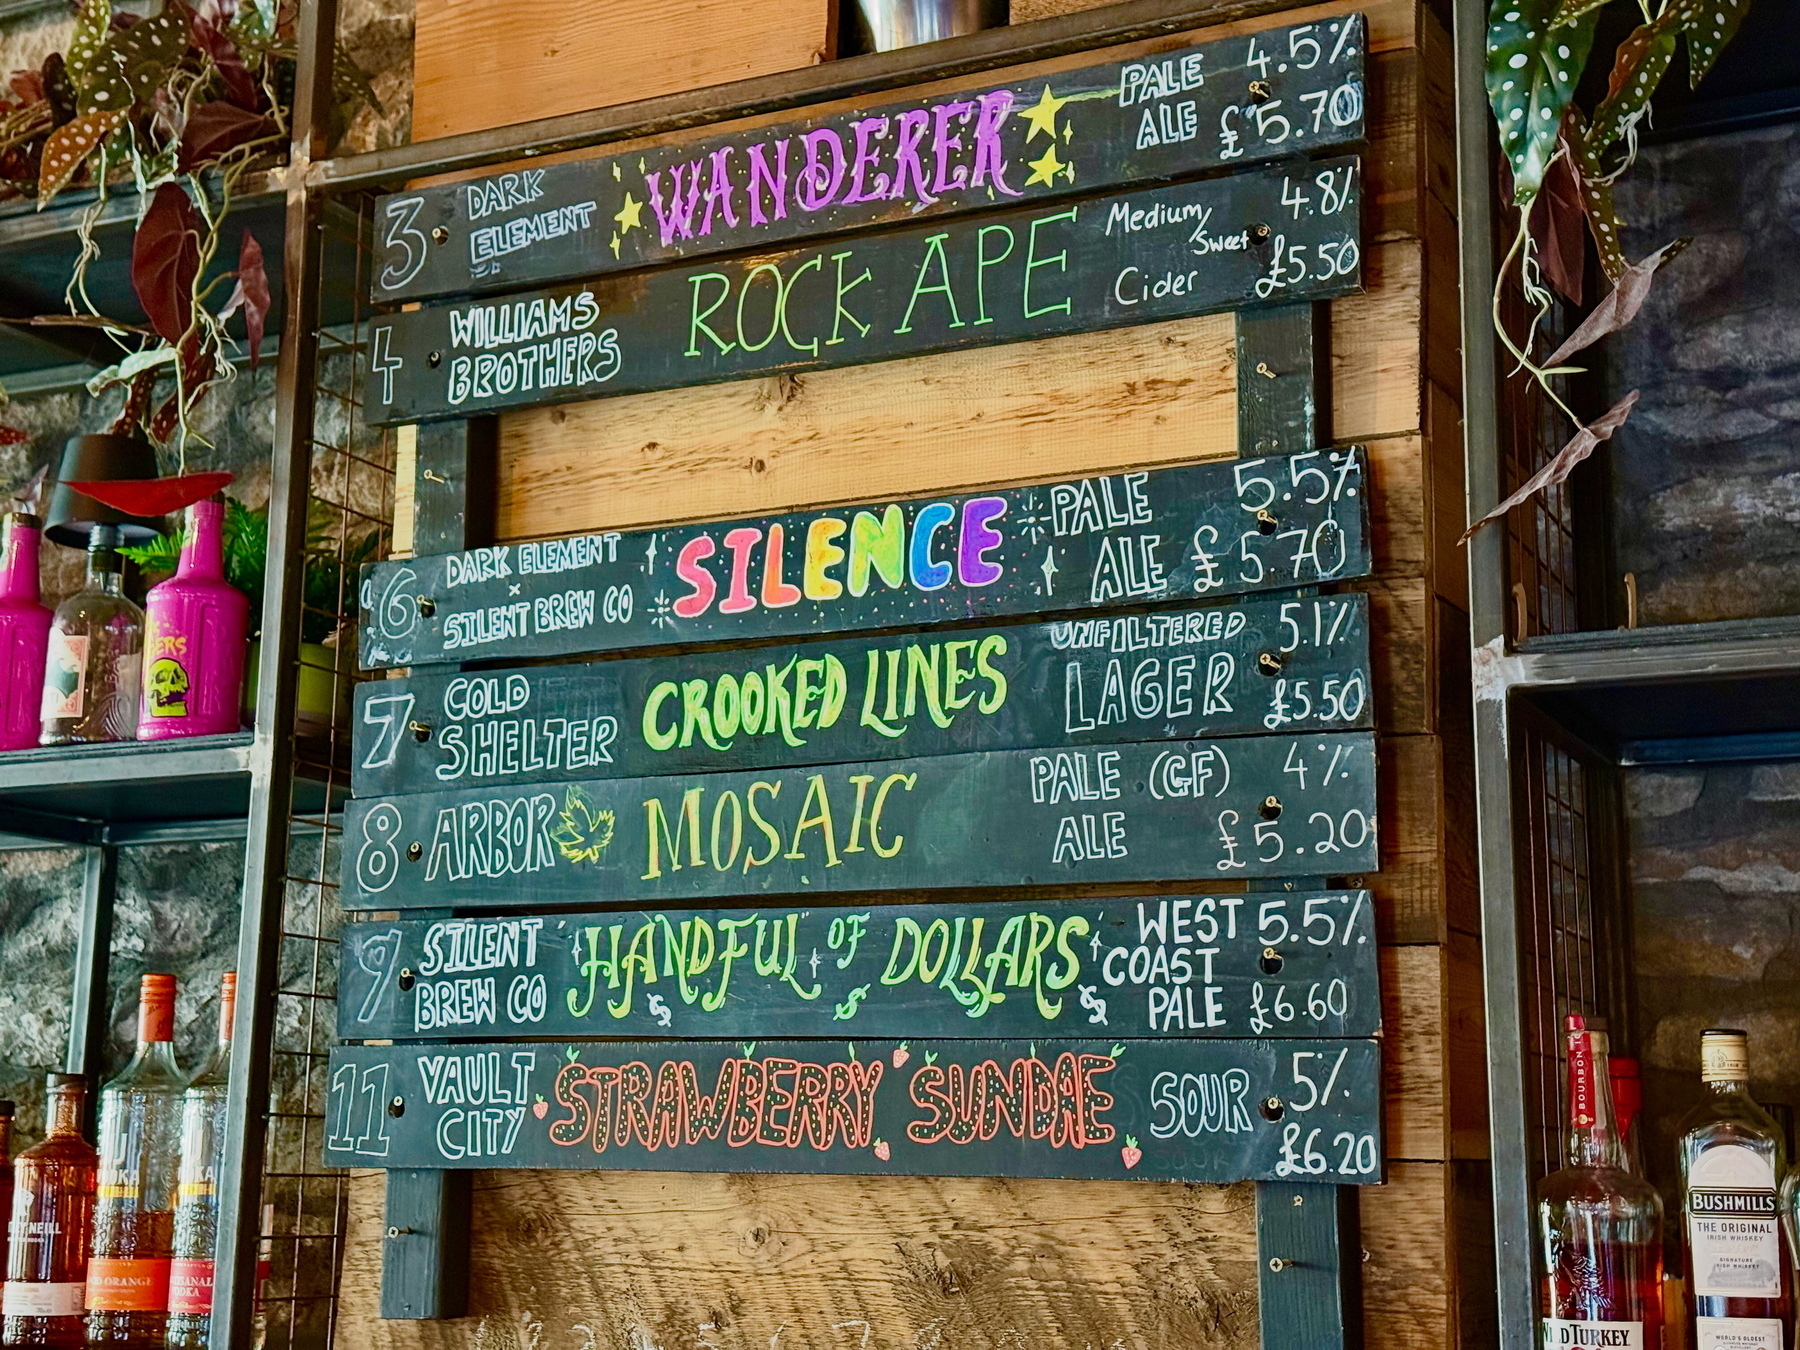 3 DARK ELEMENT WANDERER PALE ALE 4.5% £5.70
4 WILLIAMS BROTHERS ROCK APE Medium/Sweet Cider 4.8% £5.50
6 DARK ELEMENT x SILENT BREW CO SILENCE PALE ALE 5.5% £5.70
7 COLD SHELTER CROOKED LINES UNFILTERED LAGER 5.1% £5.50
8 ARBOR MOSAIC PALE ALE (GF) 4% £5.20
9 SILENT BREW CO 'HANDFUL OF DOLLARS' WEST COAST PALE 5.5% £6.60
11 VAULT CITY STRAWBERRY SUNDAE SOUR 5% £6.20
BOURBON
BUSHMILLS
THE ORIGINAL
IRISH WHISKEY
SIGNATURE
IRISH WHISKEY
WORLD'S OLDEST
TURKEY
NEILL
ORANGE